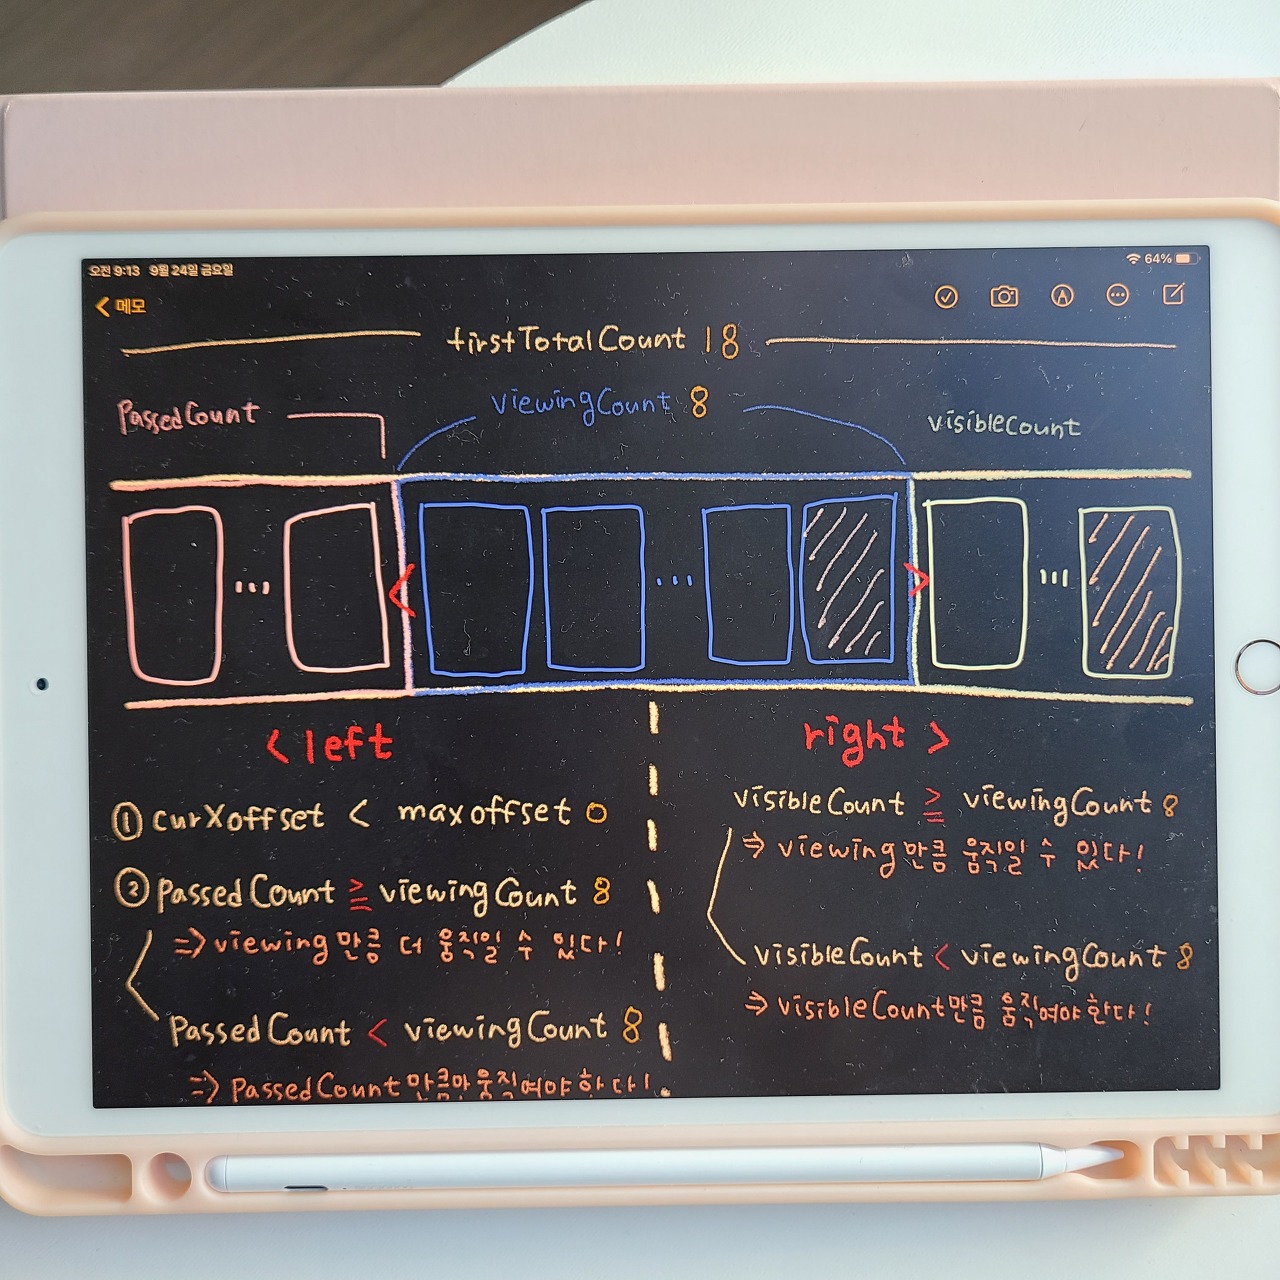 오전 9:13 9월 24일 금요일
64%
메모
firstTotalCount 18
PassedCount
viewingCount 8
visibleCount
...
...
...
<
>
< left
right >
① curXoffset < maxoffset 0
② PassedCount ≥ viewingCount 8
⇒ viewing 만큼 더 움직일 수 있다!
PassedCount < viewingCount 8
⇒ PassedCount만큼만 움직여야한다!
visibleCount ≥ viewingCount 8
⇒ viewing 만큼 움직일 수 있다!
visibleCount < viewingCount 8
⇒ visibleCount만큼 움직여야한다!